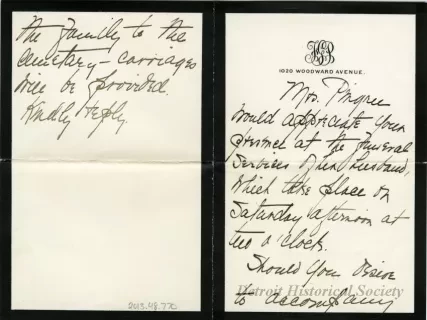 1020 WOODWARD AVENUE.
Mrs. Pingree
would appreciate your
presence at the funeral
services of her husband,
which take place on
Saturday afternoon at
two o'clock.
Should you desire
to accompany
the family to the
cemetary - carriages
will be provided.
Kindly reply.
2013.48.770
Detroit Historical Society